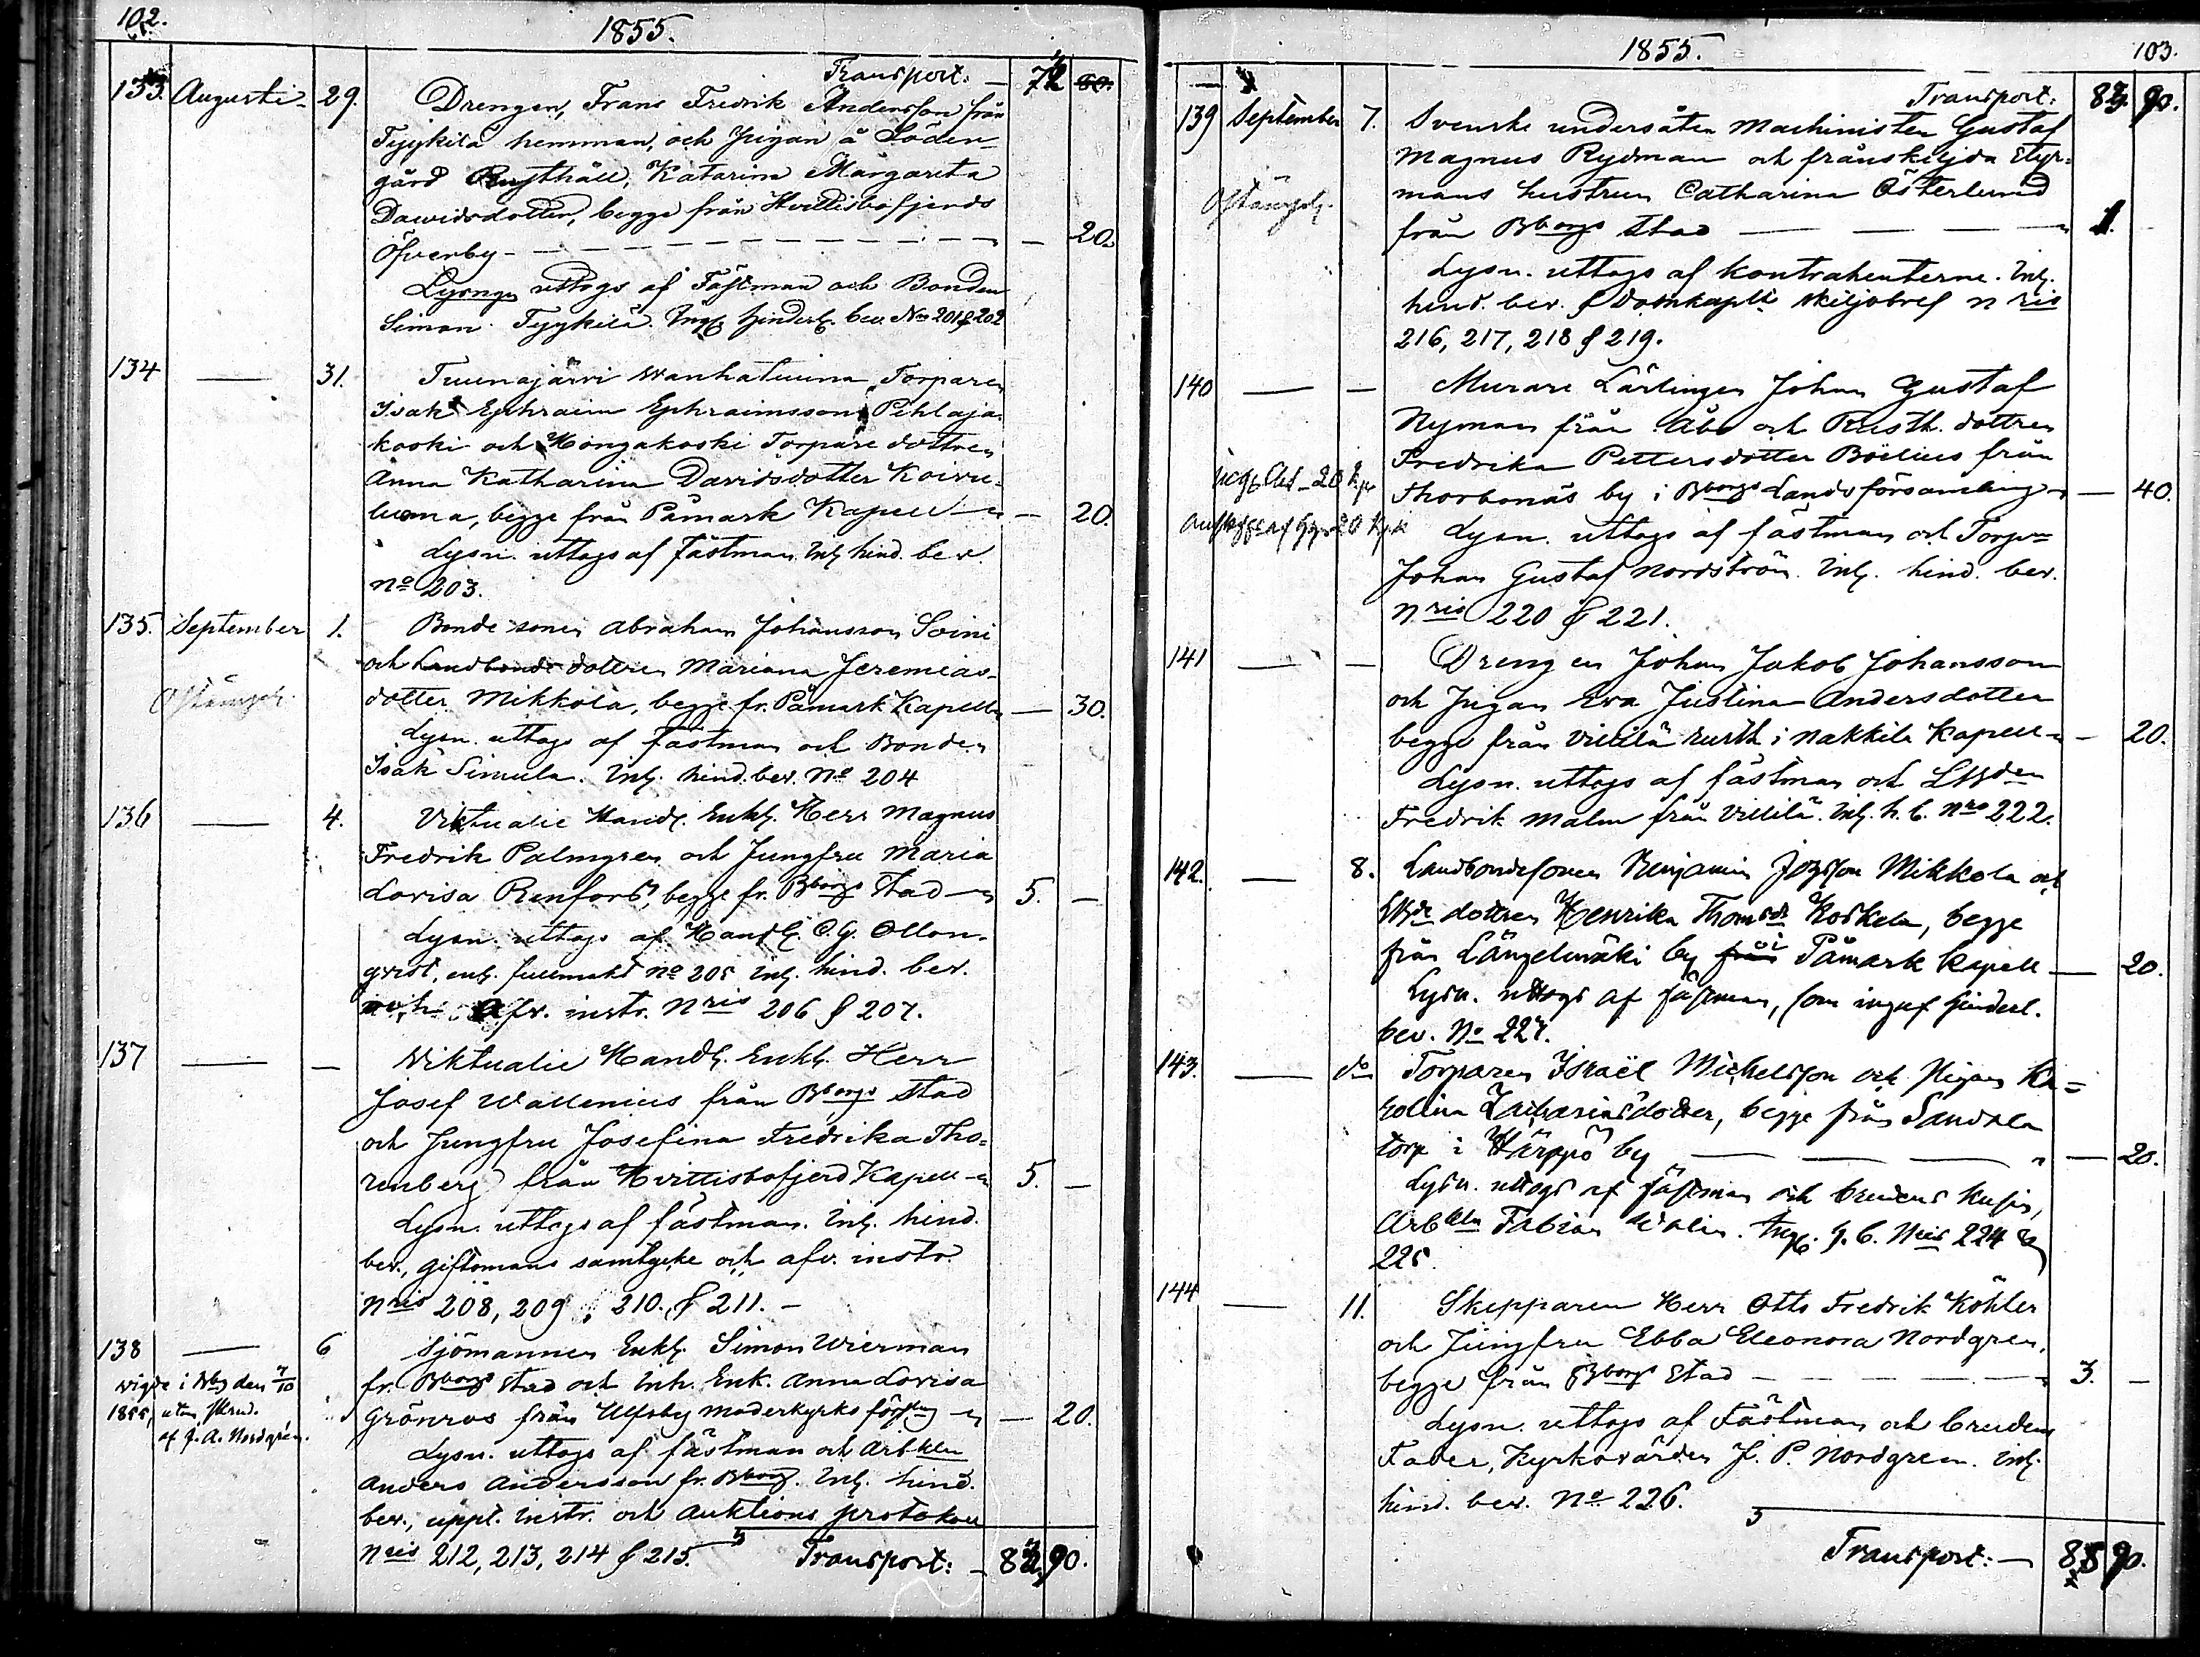 102.
1855.
Transport: — 72 60.
133. Augusti 29. Drengen, Frans Fredrik Andersson från
Tyykilä hemman, och Pigan å Söder-
gård Rusthåll, Katarina Margareta
Dawidsdotter, begge från Hvittisbofjerds
Öfverby — — 20.
Lysngn uttogs af Fästman och Bonden
Simon Tyykilä. Ingl hinderl. bev. Nris 201 & 202
134 — 31. Tuunajärvi Wanhatuuna Torparen
Isak Ephraim Ephraimsson Pihlaja-
koski och Kongakoski Torpare dottren
Anna Katharina Davidsdotter Koivu-
luoma, begge från Påmark Kapell — 20.
Lysn. uttogs af fästman. Inl. hind. bev.
No 203.
135. September 1. Bonde sonen Abraham Johansson Soini
och Landbonde dottren Mariana Jeremias-
dotter Mikkola, begge fr. Påmark Kapell — 30.
Lysn. uttogs af fästman och Bonden
Isak Simula. Inl. hind. bev. No 204
136 — 4. Viktualie Handl. Enkl. Herr Magnus
Fredrik Palmgren och Jungfru Maria
Lovisa Renfors, begge fr. Bborgs Stad 5. —
Lysn. uttogs af Handl. C. G. Ollon-
qvist, enl. fullmakt No 205 inl. hind. bev.
och afv. instr. Nris 206 & 207.
137 — — Wiktualie Handl. Enkl. Herr
Josef Wallenius från Bborgs Stad
och Jungfru Josefina Fredrika Tho-
renberg från Hvittisbofjerd Kapell 5. —
Lysn. uttogs af fästman. Inl. hind.
bev., giftomans samtycke och afv. instr.
Nris 208, 209, 210. & 211. —
138 — 6 Sjömannen Enkl. Simon Wierman
fr. Bborgs Stad och Inh. Enk. Anna Lovisa
Grönros från Ulfsby moderkyrko förslng — 20.
Lysn. uttogs af fästman och Arbkln
Anders Andersson fr. Bborg. Inl. hind.
bev., uppl. instr. och Auktions protokoll
Nris 212, 213, 214 & 215.
wigde i Bbg den 7/10
1855, utan skrud.
af J. A. Nordgrén.
Transport: — 82 90.
1855.
103.
Transport: 82 90.
139 September 7. Svenske undersåten Machinisten Gustaf
Magnus Rydman och frånskiljda Styr-
mans hustrun Catharina Österlund
från Bborgs Stad — 1.
Lysn. uttogs af Kontrahenterne. Inl.
hind. bev. & Domkaplts skiljobref Nris
216, 217, 218 & 219.
140 — — Murare Lärlingen Johan Gustaf
Nyman från Åbo och Rusth. dottren
Fredrika Pettersdotter Böelius från
Thorbonäs by i Bborgs Landsförsamling — 40.
Lysn. uttogs af fästman och Torpn
Johan Gustaf Nordström. Inl. hind. bev.
Nris 220 & 221.
141 — — Drengen Johan Jakob Johansson
och Pigan Eva Justina Andersdotter
begge från Villilä rusth i Nakkila Kapell — 20.
Lysn. uttogs af fästman och
Fredrik Malm från Villilä. Inl. h. b. Nro 222.
142. — 8. Landbondesonen Benjamin Mikkola och
dottren Henrika Thomsdr Koskela, begge
från Längelmäki by från i Påmark Kapell — 20.
Lysn. uttogs af fästman, som ingaf hinderl.
bev. No 227.
143. — do Torparen Israël Michelsson och Pigan Ka-
rolina Zachariasdotter, begge från Sandala
torp i Härpö by — 20.
Lysn. uttogs af fästman och brudens kusin,
Arbkln Fabian Walin. Ingl. h. b. Nris 224 &
225.
144 — 11. Skepparen Herr Otto Fredrik Köhler
och Jungfru Ebba Eleonora Nordgren,
begge från Bborgs Stad — 3. —
Lysn. uttogs af Fästman och brudens
Fader, Kyrkovärden J. P. Nordgren. Inl.
hind. bev. No 226.
Transport: — 85 90.